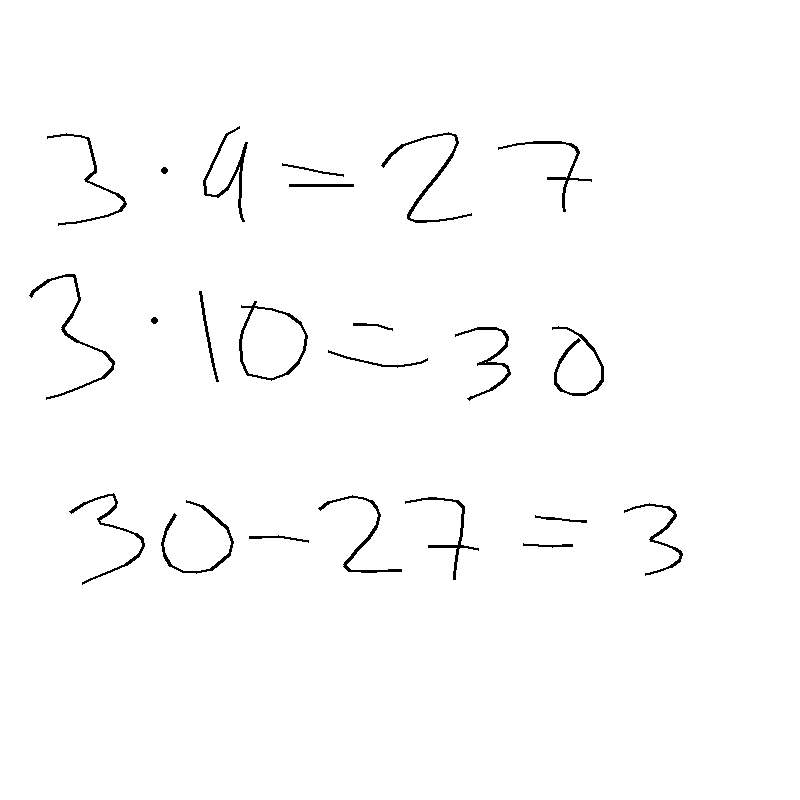 3 · 9 = 27
3 · 10 = 30
30 - 27 = 3